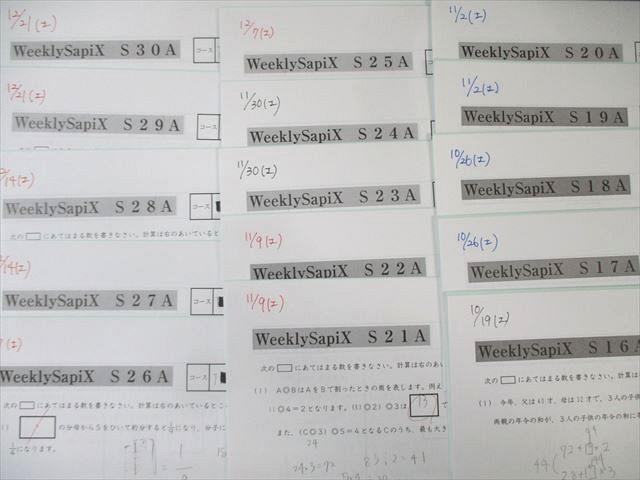 12/21(土)
WeeklySapiX S30A
12/21(土)
WeeklySapiX S29A
コース
14(土)
WeeklySapiX S28A
コース
次の□にあてはまる数を書きなさい。計算は右のあいていると
14(土)
WeeklySapiX S27A
コース
(土)
WeeklySapiX S26A
コース
次の□にあてはまる数を書きなさい。計算は右のあいているところ
の分母から5をひいて約分すると
になります。
12/7(土)
WeeklySapiX S25A
11/30(土)
WeeklySapiX S24A
11/30(土)
WeeklySapiX S23A
11/9(土)
WeeklySapiX S22A
11/9(土)
WeeklySapiX S21A
次の□にあてはまる数を書きなさい。計算は右のあい
(1) A◎BはAをBで割ったときの商を表します。例え
1◎4=2となります。(1)◎2)◎3は 13 で
また、(C◎3)◎5=4となるCのうち、最も大き
24
24×3=72
11/2(土)
WeeklySapiX S20A
11/2(土)
WeeklySapiX S19A
10/26(土)
WeeklySapiX S18A
10/26(土)
WeeklySapiX S17A
10/19(土)
WeeklySapiX S16A
次の□にあてはまる数を書きなさい。
(1) 今年、父は41才、母は32才で、3人の子供
両親の年令の和が、3人の子供の年令の和に
44